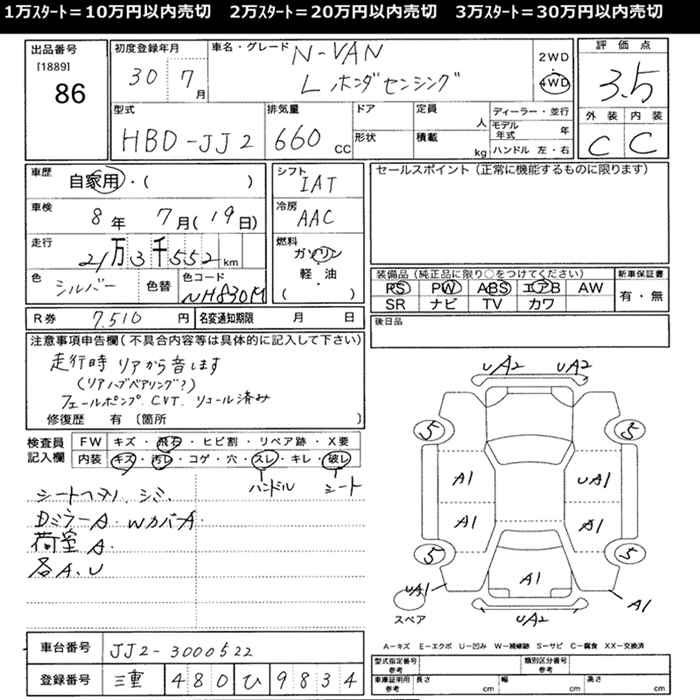 1万ｽﾀｰﾄ＝10万円以内売切　2万ｽﾀｰﾄ＝20万円以内売切　3万ｽﾀｰﾄ＝30万円以内売切
出品番号
[1889]
86
初度登録年月
30 7月
車名・グレード
N-VAN
L ホンダセンシング
2WD
・
4WD
評価点
3.5
外装 内装
C C
型式
HBD-JJ2
排気量
660 CC
ドア
形状
定員 人
積載 kg
ディーラー・並行
モデル年式 年
ハンドル 左・右
車歴
自家用・( )
車検
8年 7月(19日)
走行
21万3千552km
色
シルバー
色替
色コード
NH830M
シフト
IAT
冷房
AAC
燃料
ガソリン
軽・油
( )
セールスポイント（正常に機能するものに限ります）
装備品（純正品に限り○をつけてください）
PS PW ABS エアB AW
SR ナビ TV カワ
新車保証書
有・無
R券 7,510 円
名変通知期限 月 日
後日品
注意事項申告欄（不具合内容等は具体的に記入して下さい）
走行時 リアから音します
(リアハブベアリング?)
フェールポンプ. CVT. リコール済み
修復歴 有〔箇所 〕
検査員
記入欄
FW キズ・飛石・ヒビ割・リペア跡・X要
内装 キズ・汚レ・コゲ・穴・スレ・キレ・破レ
ハンドル
シート
シートヘタリ. シミ.
DミラーA. WカバーA.
荷室A.
各A.U
UA2 UA2
5 5
A1 UA1
A1 A1
5 5
A1
UA1
スペア
UA2
A1
A−キズ E−エクボ U−凹み W−補修跡 S−サビ C−腐食 XX−交換済
車台番号 JJ2-3000522
登録番号 三重 480 ひ 9834
型式指定番号
参考
類別区分番号
参考
車庫証明用
参考
長さ cm 幅 cm 高さ cm